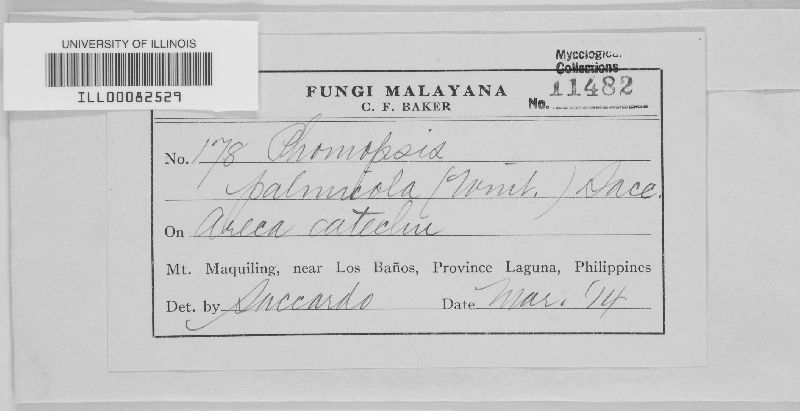 UNIVERSITY OF ILLINOIS
ILL00082529
Mycological
Collections
No. 11482
FUNGI MALAYANA
C. F. BAKER
No. 178 Phomopsis
palmicola (Wint.) Sacc.
On Areca catechu
Mt. Maquiling, near Los Baños, Province Laguna, Philippines
Det. by Saccardo Date Mar. '14